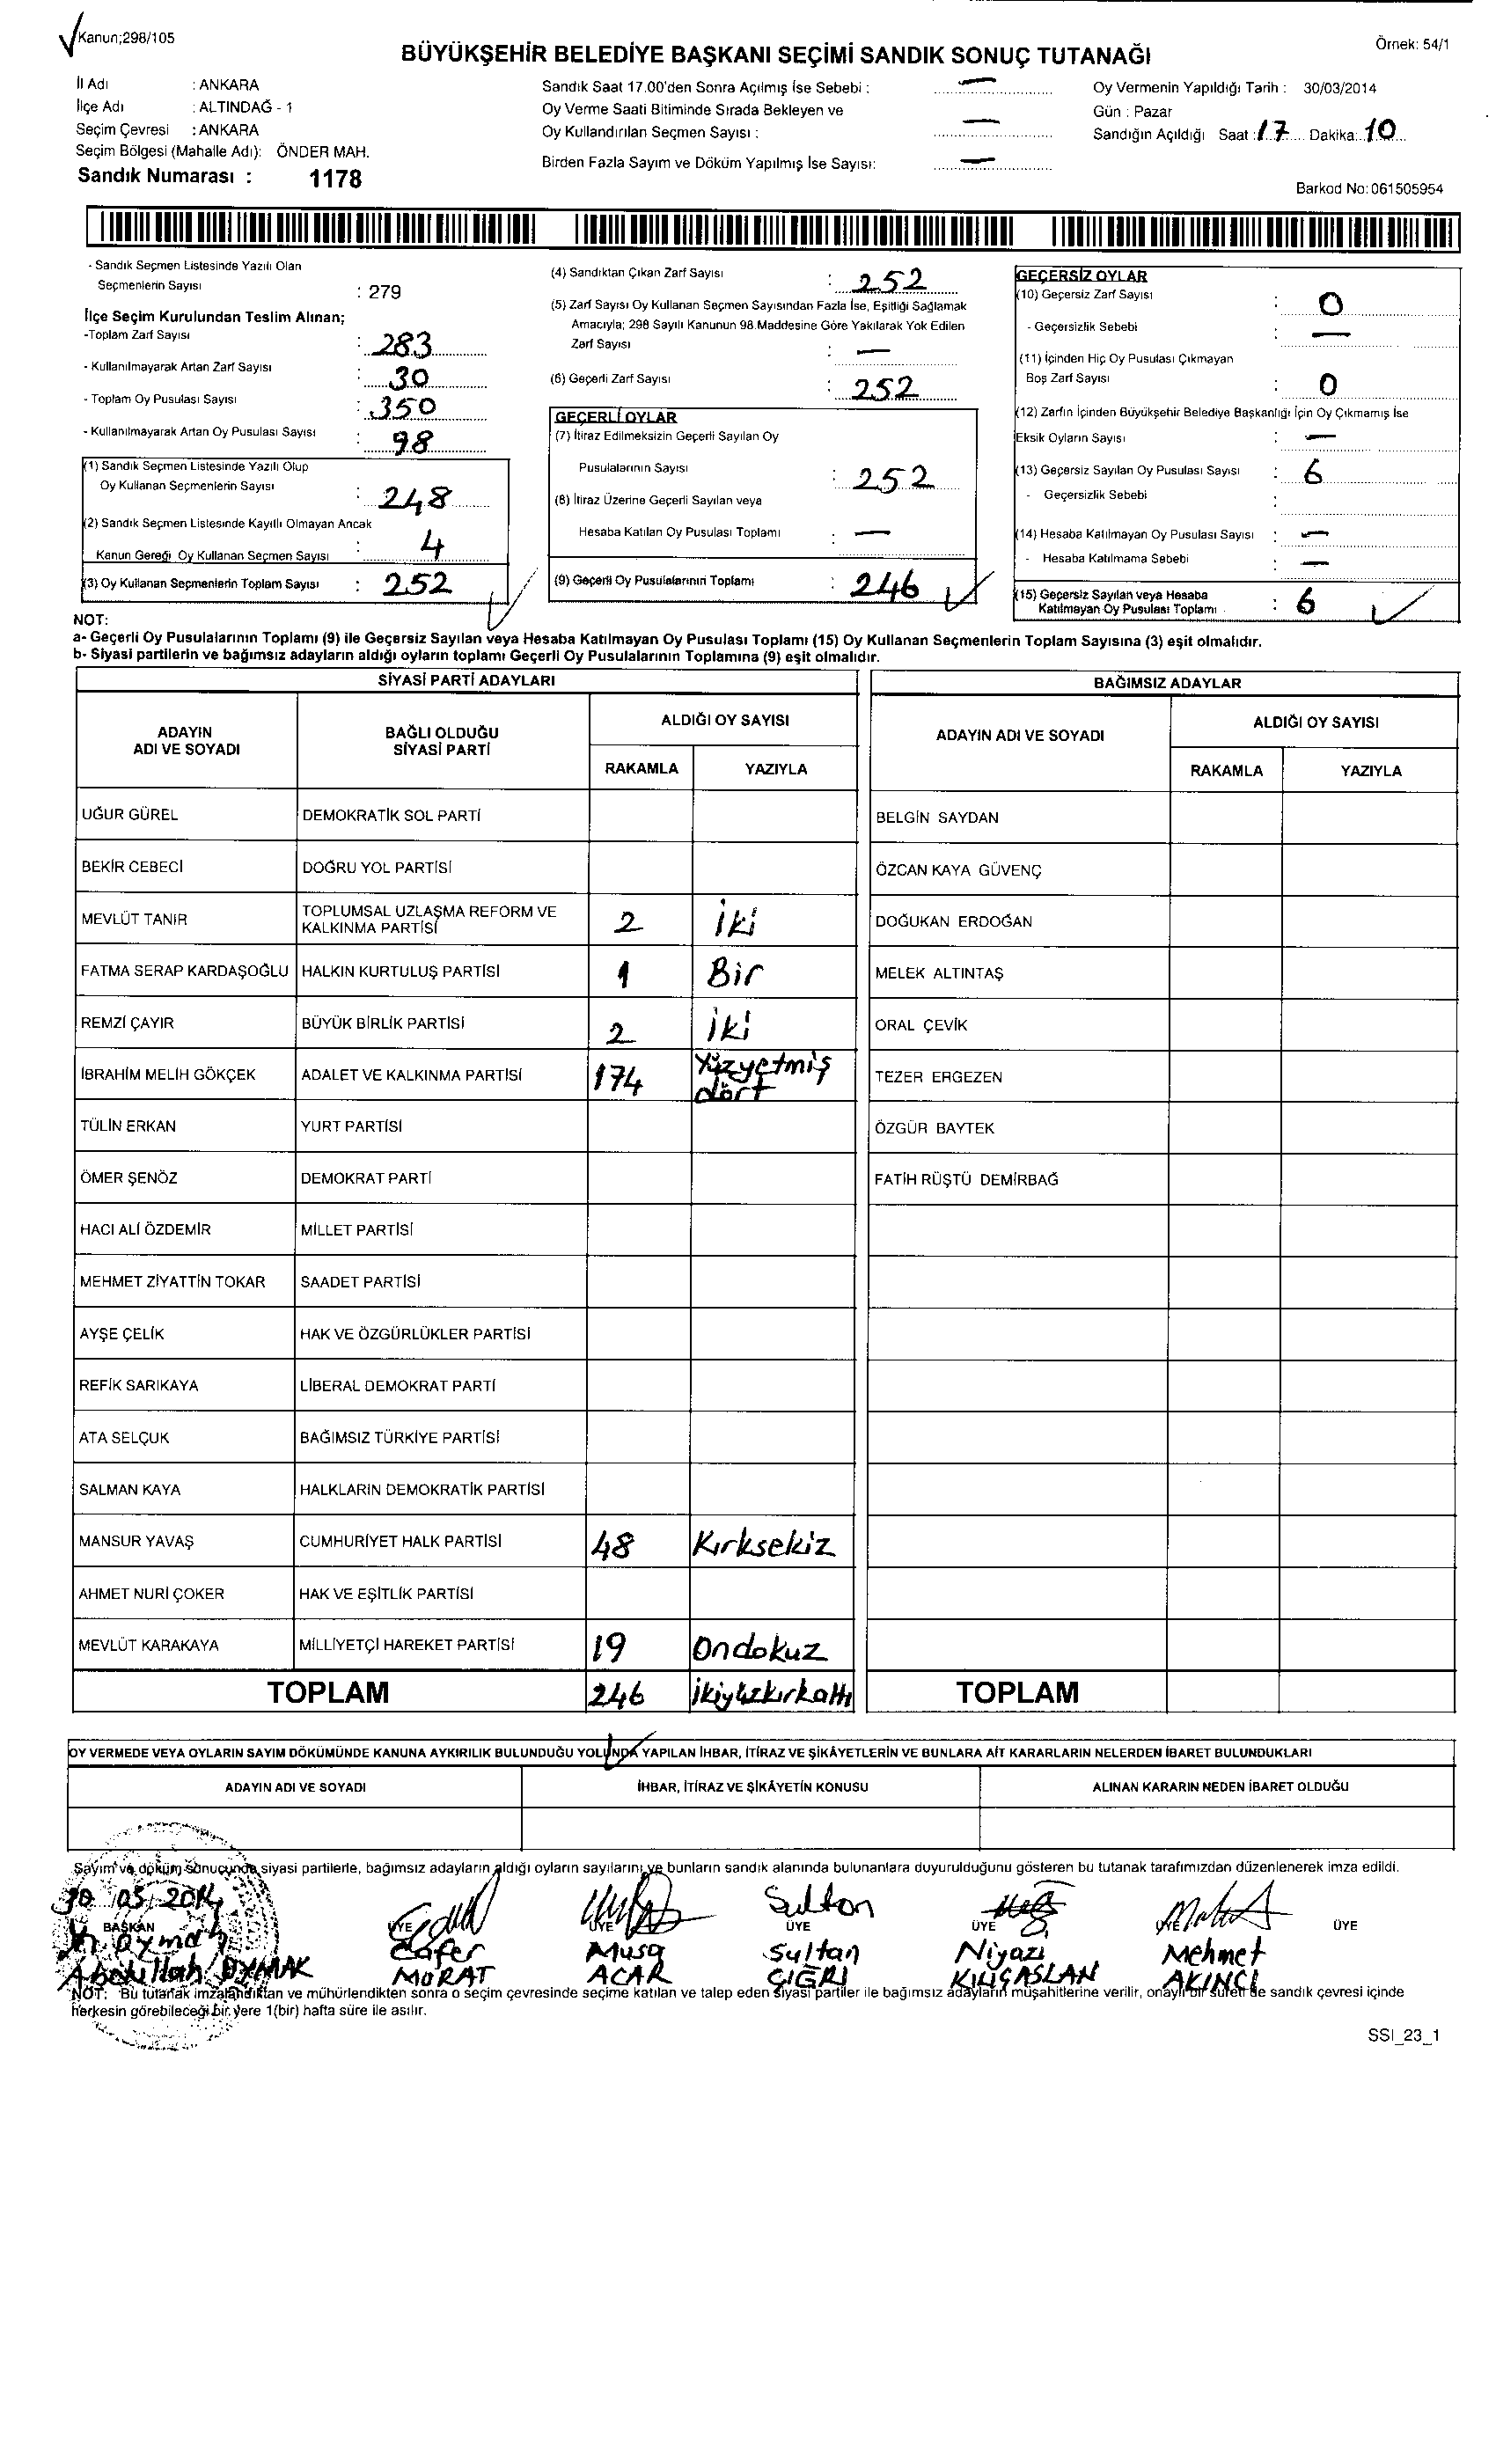 Kanun;298/105
Örnek: 54/1
BÜYÜKŞEHİR BELEDİYE BAŞKANI SEÇİMİ SANDIK SONUÇ TUTANAĞI
İl Adı : ANKARA
İlçe Adı : ALTINDAĞ - 1
Seçim Çevresi : ANKARA
Seçim Bölgesi (Mahalle Adı): ÖNDER MAH.
Sandık Numarası : 1178
Sandık Saat 17.00'den Sonra Açılmış İse Sebebi : —
Oy Verme Saati Bitiminde Sırada Bekleyen ve
Oy Kullandırılan Seçmen Sayısı : —
Birden Fazla Sayım ve Döküm Yapılmış İse Sayısı: —
Oy Vermenin Yapıldığı Tarih : 30/03/2014
Gün : Pazar
Sandığın Açıldığı Saat : 17 Dakika: 10
Barkod No: 061505954
- Sandık Seçmen Listesinde Yazılı Olan
Seçmenlerin Sayısı : 279
İlçe Seçim Kurulundan Teslim Alınan;
-Toplam Zarf Sayısı : 283
- Kullanılmayarak Artan Zarf Sayısı : 30
- Toplam Oy Pusulası Sayısı : 350
- Kullanılmayarak Artan Oy Pusulası Sayısı : 98
(1) Sandık Seçmen Listesinde Yazılı Olup
Oy Kullanan Seçmenlerin Sayısı : 248
(2) Sandık Seçmen Listesinde Kayıtlı Olmayan Ancak
Kanun Gereği Oy Kullanan Seçmen Sayısı : 4
(3) Oy Kullanan Seçmenlerin Toplam Sayısı : 252
(4) Sandıktan Çıkan Zarf Sayısı : 252
(5) Zarf Sayısı Oy Kullanan Seçmen Sayısından Fazla İse, Eşitliği Sağlamak
Amacıyla; 298 Sayılı Kanunun 98.Maddesine Göre Yakılarak Yok Edilen
Zarf Sayısı : —
(6) Geçerli Zarf Sayısı : 252
GEÇERLİ OYLAR
(7) İtiraz Edilmeksizin Geçerli Sayılan Oy
Pusulalarının Sayısı : 252
(8) İtiraz Üzerine Geçerli Sayılan veya
Hesaba Katılan Oy Pusulası Toplamı : —
(9) Geçerli Oy Pusulalarının Toplamı : 246
GEÇERSİZ OYLAR
(10) Geçersiz Zarf Sayısı : 0
- Geçersizlik Sebebi : —
(11) İçinden Hiç Oy Pusulası Çıkmayan
Boş Zarf Sayısı : 0
(12) Zarfın İçinden Büyükşehir Belediye Başkanlığı İçin Oy Çıkmamış İse
Eksik Oyların Sayısı : —
(13) Geçersiz Sayılan Oy Pusulası Sayısı : 6
- Geçersizlik Sebebi :
(14) Hesaba Katılmayan Oy Pusulası Sayısı : —
- Hesaba Katılmama Sebebi : —
(15) Geçersiz Sayılan veya Hesaba
Katılmayan Oy Pusulası Toplamı : 6
NOT:
a- Geçerli Oy Pusulalarının Toplamı (9) ile Geçersiz Sayılan veya Hesaba Katılmayan Oy Pusulası Toplamı (15) Oy Kullanan Seçmenlerin Toplam Sayısına (3) eşit olmalıdır.
b- Siyasi partilerin ve bağımsız adayların aldığı oyların toplamı Geçerli Oy Pusulalarının Toplamına (9) eşit olmalıdır.
SİYASİ PARTİ ADAYLARI
ADAYIN ADI VE SOYADI
BAĞLI OLDUĞU SİYASİ PARTİ
ALDIĞI OY SAYISI
RAKAMLA YAZIYLA
UĞUR GÜREL DEMOKRATİK SOL PARTİ
BEKİR CEBECİ DOĞRU YOL PARTİSİ
MEVLÜT TANIR TOPLUMSAL UZLAŞMA REFORM VE KALKINMA PARTİSİ 2 iki
FATMA SERAP KARDAŞOĞLU HALKIN KURTULUŞ PARTİSİ 1 Bir
REMZİ ÇAYIR BÜYÜK BİRLİK PARTİSİ 2 iki
İBRAHİM MELİH GÖKÇEK ADALET VE KALKINMA PARTİSİ 174 Yüzyetmiş dört
TÜLİN ERKAN YURT PARTİSİ
ÖMER ŞENÖZ DEMOKRAT PARTİ
HACI ALİ ÖZDEMİR MİLLET PARTİSİ
MEHMET ZİYATTİN TOKAR SAADET PARTİSİ
AYŞE ÇELİK HAK VE ÖZGÜRLÜKLER PARTİSİ
REFİK SARIKAYA LİBERAL DEMOKRAT PARTİ
ATA SELÇUK BAĞIMSIZ TÜRKİYE PARTİSİ
SALMAN KAYA HALKLARIN DEMOKRATİK PARTİSİ
MANSUR YAVAŞ CUMHURİYET HALK PARTİSİ 48 Kırksekiz
AHMET NURİ ÇOKER HAK VE EŞİTLİK PARTİSİ
MEVLÜT KARAKAYA MİLLİYETÇİ HAREKET PARTİSİ 19 Ondokuz
TOPLAM 246 ikiyüzkırkaltı
BAĞIMSIZ ADAYLAR
ADAYIN ADI VE SOYADI
ALDIĞI OY SAYISI
RAKAMLA YAZIYLA
BELGİN SAYDAN
ÖZCAN KAYA GÜVENÇ
DOĞUKAN ERDOĞAN
MELEK ALTINTAŞ
ORAL ÇEVİK
TEZER ERGEZEN
ÖZGÜR BAYTEK
FATİH RÜŞTÜ DEMİRBAĞ
TOPLAM
OY VERMEDE VEYA OYLARIN SAYIM DÖKÜMÜNDE KANUNA AYKIRILIK BULUNDUĞU YOLUNDA YAPILAN İHBAR, İTİRAZ VE ŞİKÂYETLERİN VE BUNLARA AİT KARARLARIN NELERDEN İBARET BULUNDUKLARI
ADAYIN ADI VE SOYADI İHBAR, İTİRAZ VE ŞİKÂYETİN KONUSU ALINAN KARARIN NEDEN İBARET OLDUĞU
Sayım ve döküm sonucunda siyasi partilerle, bağımsız adayların aldığı oyların sayılarını ve bunların sandık alanında bulunanlara duyurulduğunu gösteren bu tutanak tarafımızdan düzenlenerek imza edildi.
30 03/2014
Sultan
BAŞKAN ÜYE ÜYE ÜYE ÜYE ÜYE ÜYE
Abdullah OYMAK
Cafer MURAT
Musa ACAR
Sultan ÇIĞRI
Niyazi KILIÇASLAN
Mehmet AKINCI
NOT: Bu tutanak imzalandıktan ve mühürlendikten sonra o seçim çevresinde seçime katılan ve talep eden siyasi partiler ile bağımsız adayların müşahitlerine verilir, onaylı bir sureti de sandık çevresi içinde
herkesin görebileceği bir yere 1(bir) hafta süre ile asılır.
SSI_23_1